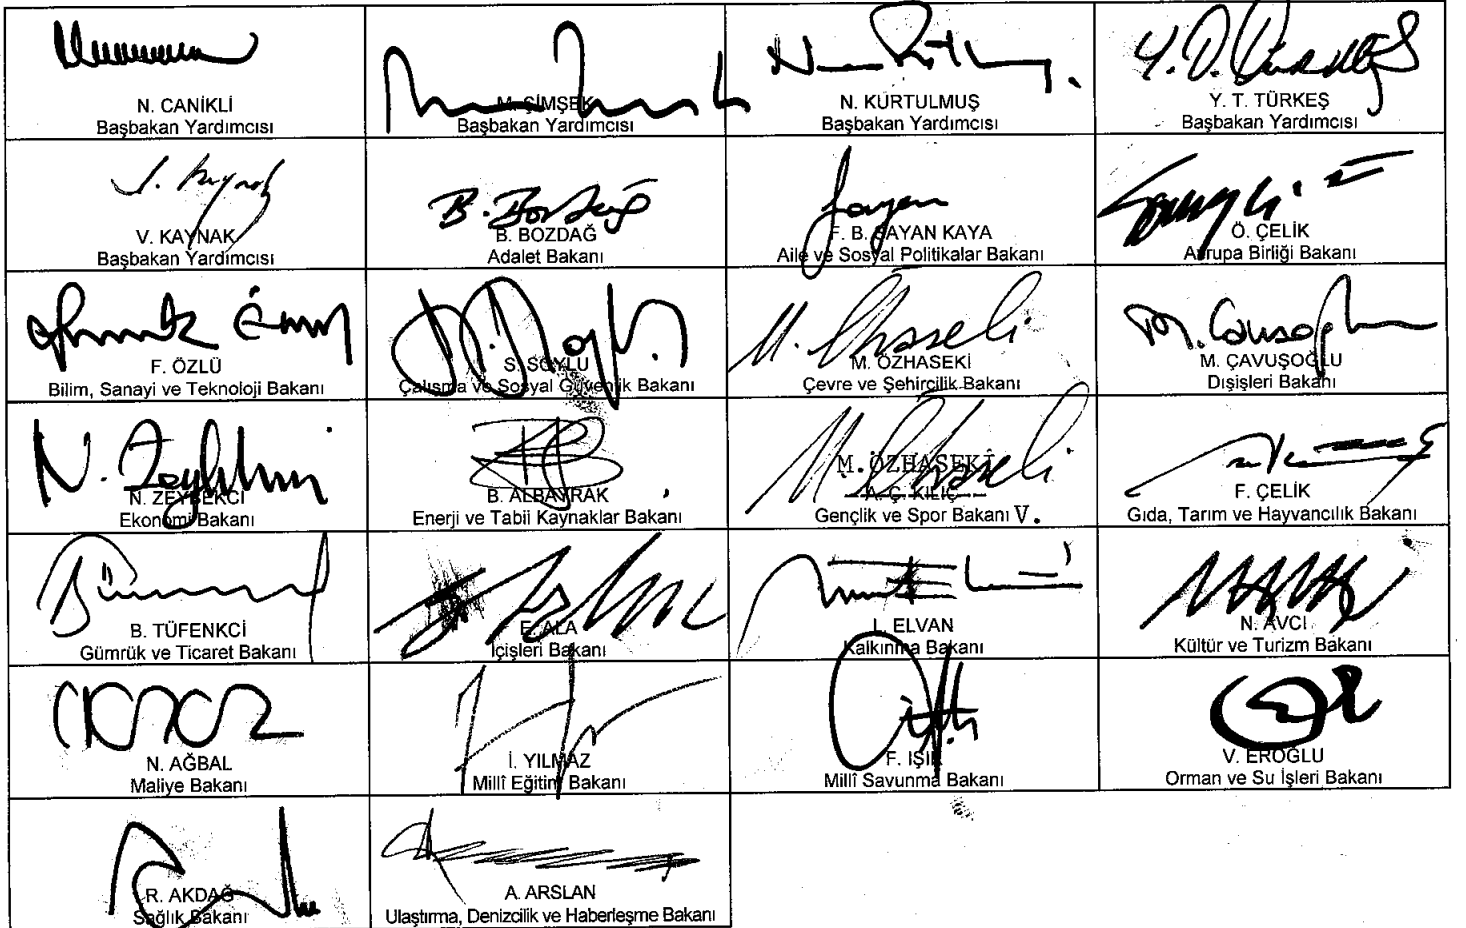 N. CANİKLİ
Başbakan Yardımcısı
M. ŞİMŞEK
Başbakan Yardımcısı
N. KURTULMUŞ
Başbakan Yardımcısı
Y. T. TÜRKEŞ
Başbakan Yardımcısı
V. KAYNAK
Başbakan Yardımcısı
B. BOZDAĞ
Adalet Bakanı
F. B. SAYAN KAYA
Aile ve Sosyal Politikalar Bakanı
Ö. ÇELİK
Avrupa Birliği Bakanı
F. ÖZLÜ
Bilim, Sanayi ve Teknoloji Bakanı
S. SOYLU
Çalışma ve Sosyal Güvenlik Bakanı
M. ÖZHASEKİ
Çevre ve Şehircilik Bakanı
M. ÇAVUŞOĞLU
Dışişleri Bakanı
N. ZEYBEKCİ
Ekonomi Bakanı
B. ALBAYRAK
Enerji ve Tabii Kaynaklar Bakanı
M. ÖZHASEKİ
A. Ç. KILIÇ
Gençlik ve Spor Bakanı V.
F. ÇELİK
Gıda, Tarım ve Hayvancılık Bakanı
B. TÜFENKCİ
Gümrük ve Ticaret Bakanı
E. ALA
İçişleri Bakanı
L. ELVAN
Kalkınma Bakanı
N. AVCI
Kültür ve Turizm Bakanı
N. AĞBAL
Maliye Bakanı
İ. YILMAZ
Millî Eğitim Bakanı
F. IŞIK
Millî Savunma Bakanı
V. EROĞLU
Orman ve Su İşleri Bakanı
R. AKDAĞ
Sağlık Bakanı
A. ARSLAN
Ulaştırma, Denizcilik ve Haberleşme Bakanı